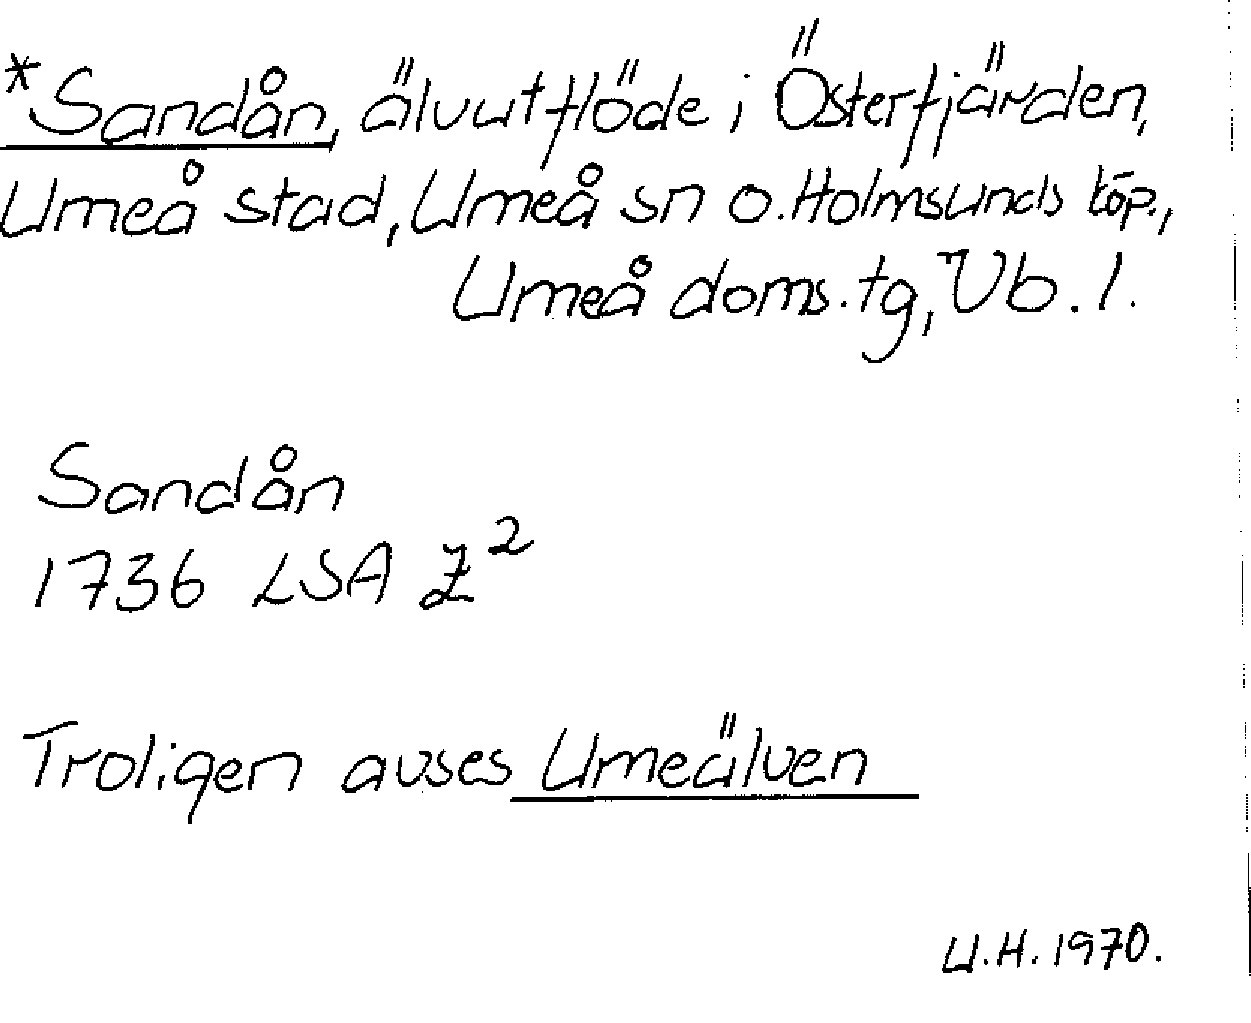 *Sandån, älvutflöde i Österfjärden,
Umeå stad, Umeå sn o. Holmsunds köp.,
Umeå doms. tg, Vb. l.
Sandån
1736 LSA Z²
Troligen avses Umeälven
U.H. 1970.